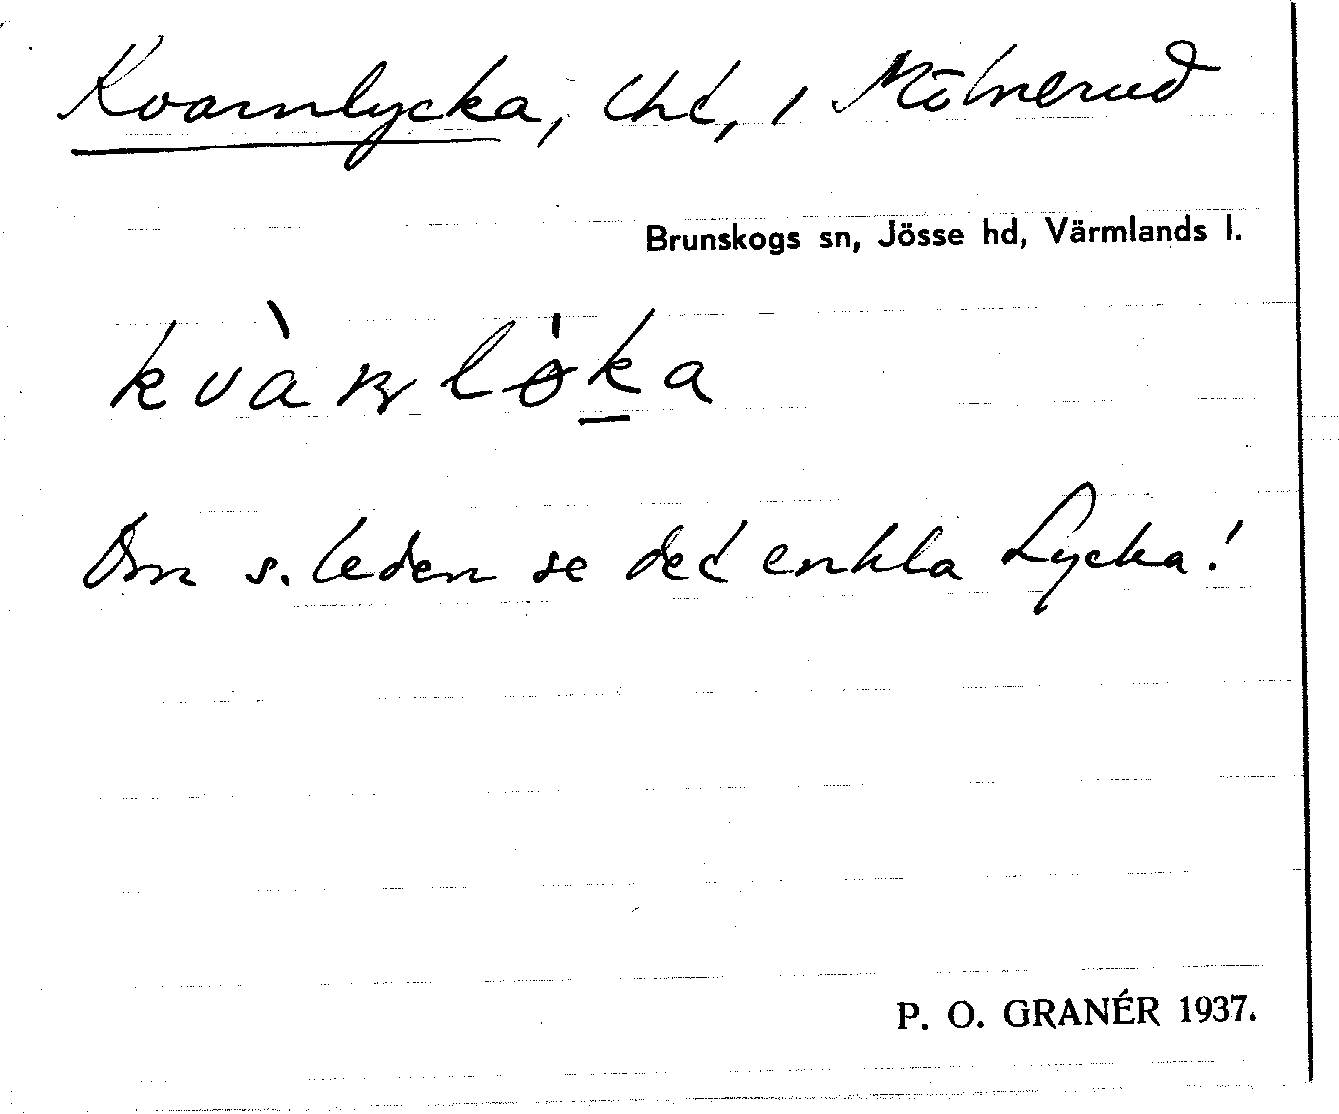 Kvarnlycka, thé, i Mölnerud
Brunskogs sn, Jösse hd, Värmlands l.
kvàɳlɵ̍ka
Om s. leden se det enkla Lycka!
P. O. GRANÉR 1937.